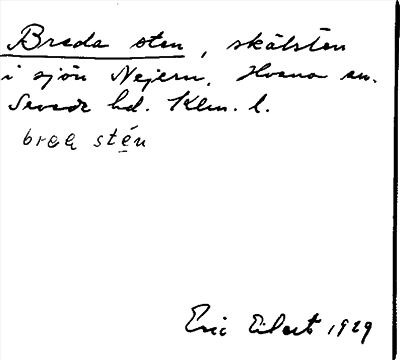 Breda sten, skälsten
i sjön Nejern, Hvena sn.
Sevede hd. Klm. l.
brea stén
Eric Elert 1929